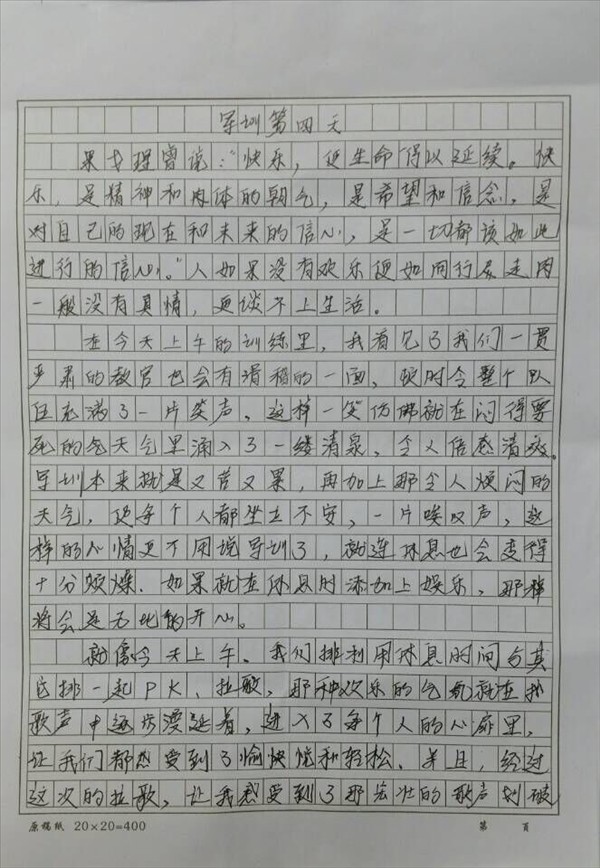 军训第四天
果戈理曾说：“快乐，使生命得以延续。快
乐，是精神和肉体的朝气，是希望和信念，是
对自己的现在和未来的信心，是一切都该如此
进行的信心。”人如果没有欢乐便如同行尸走肉
一般没有真情，更谈不上生活。
在今天上午的训练里，我看见了我们一贯
严肃的教官也会有滑稽的一面，顿时令整个队
伍充满了一片笑声，这样一笑仿佛就在闷得要
死的气天气里涌入了一缕清泉，令人倍感清爽。
军训本来就是又苦又累，再加上那令人烦闷的
天气，使每个人都坐立不安，一片唉叹声，这
样的心情更不用说军训了，就连休息也会变得
十分烦燥，如果就在休息时添加上娱乐，那样
将会是无比的开心。
就像今天上午，我们排利用休息时间与其
它排一起PK、拉歌，那种欢乐的气氛就在我
歌声中逐步漫延着，进入了每个人的心扉里，
让我们都感受到了愉快悦和轻松，并且，经过
这次的拉歌，让我感受到了那宏壮的歌声划破
原稿纸 20×20=400 第 页